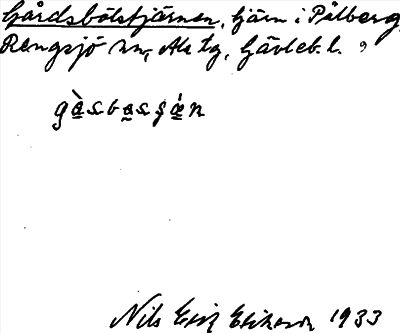 Gårdsbölstjärnen, tjärn i Pålberg,
Rengsjö sn, Ala tg, Gävleb. l.
gàsbasşǽn
Nils Erik Erikson 1933